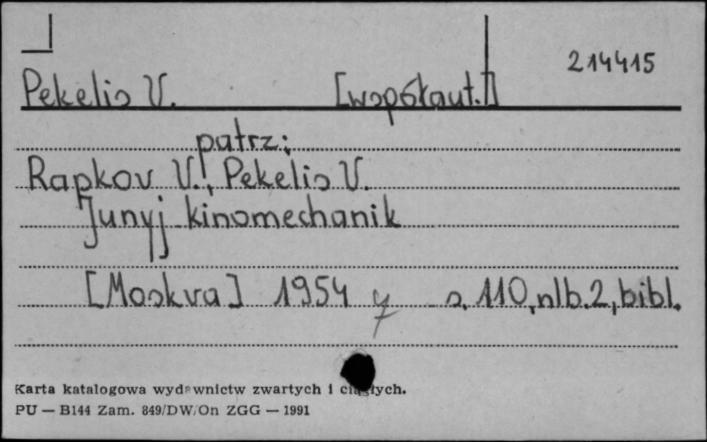 214415
Pekelis V. [współaut.]
patrz:
Rapkov V., Pekelis V.
Junyj kinomechanik
[Moskva] 1954 s. 110, nlb. 2, bibl.
Karta katalogowa wydawnictw zwartych i ciągłych.
PU — B144 Zam. 849/DW/On ZGG — 1991